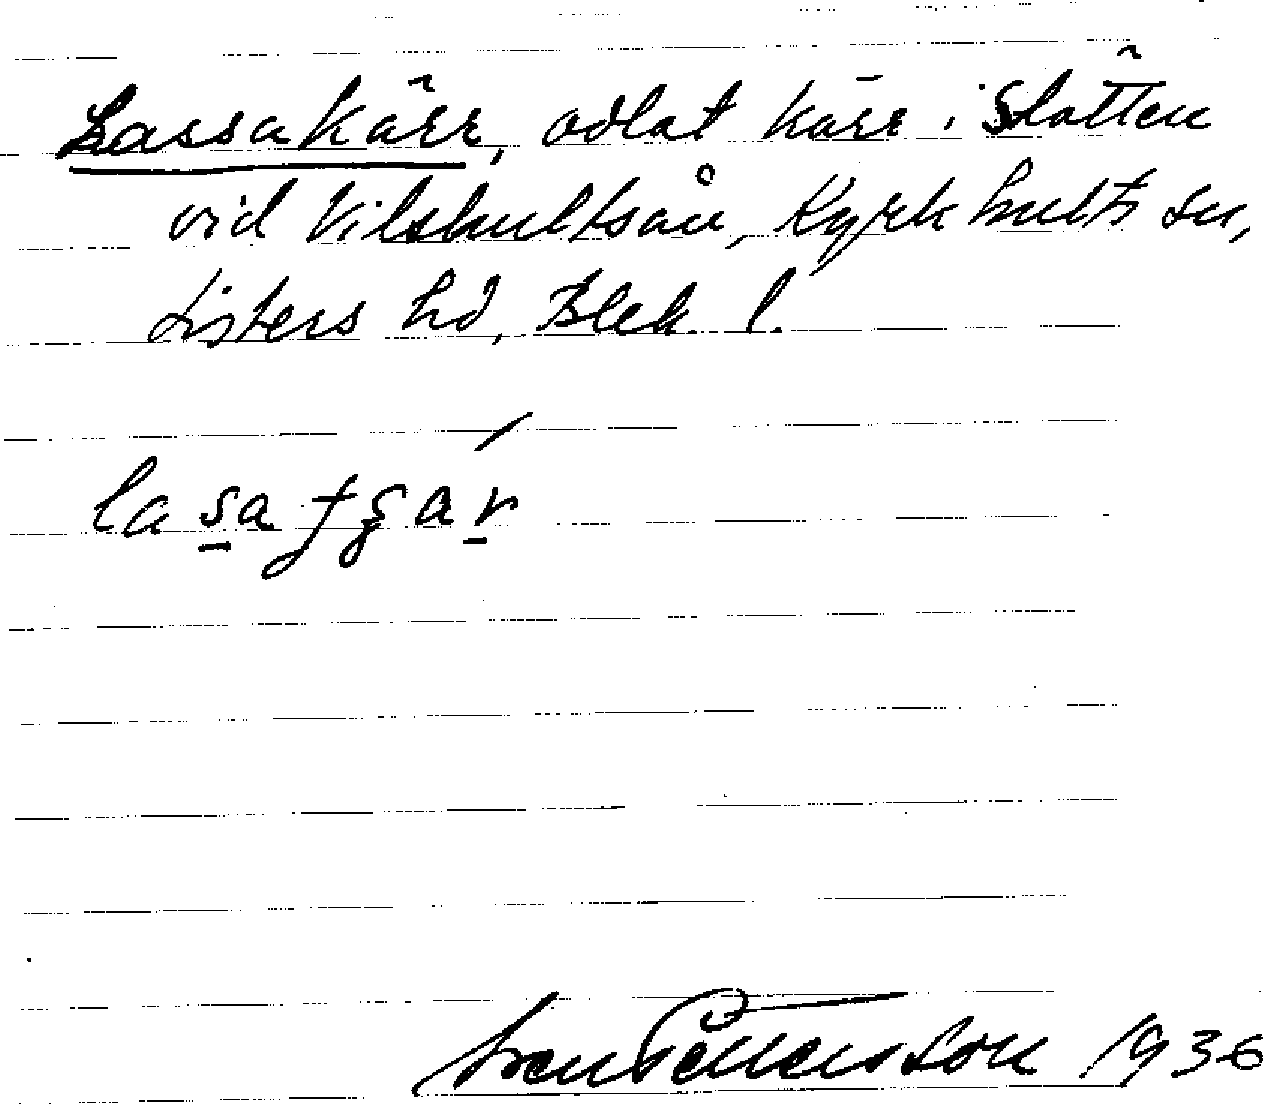 Lassakärr, odlat kärr i Slätten
vid Vilshultsån, Kyrkhults sn,
Listers hd, Blek. l.
Sven Pettersson 1936